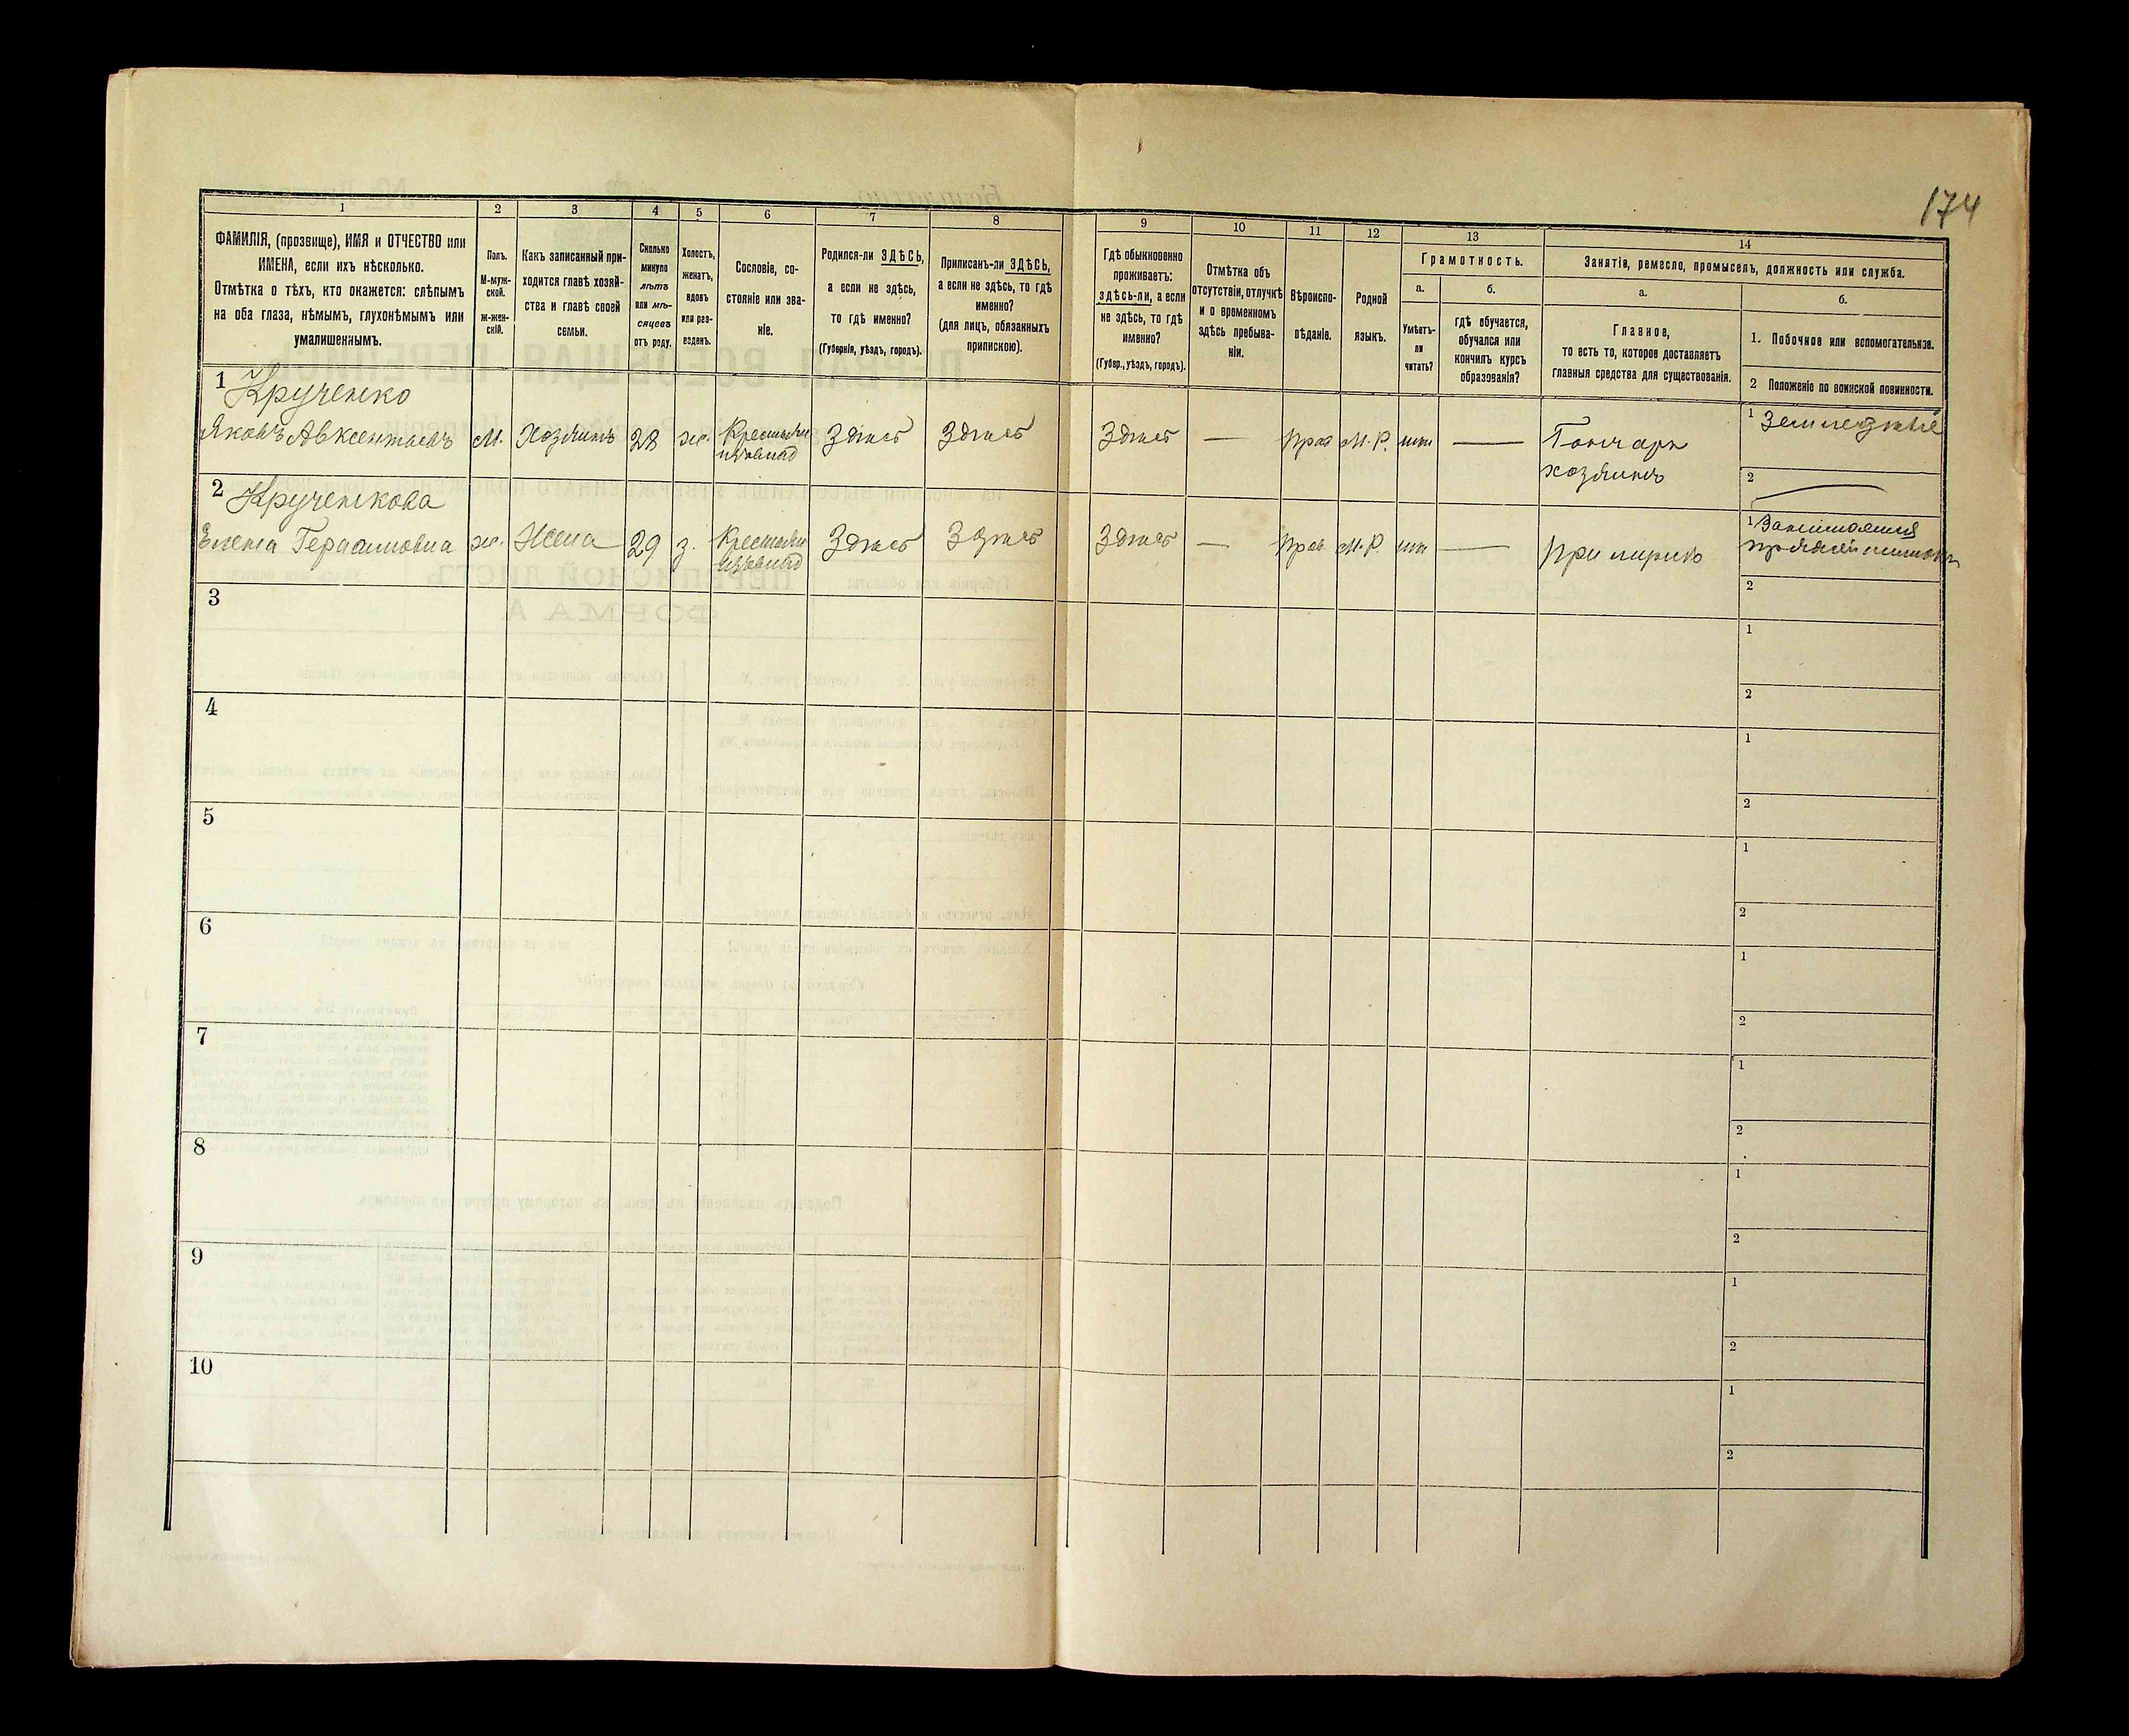 174
1
2
3
4
5
6
7
8
9
10
11
12
13
14
ФАМИЛІЯ, (прозвище), ИМЯ и ОТЧЕСТВО или
ИМЕНА, если ихъ нѣсколько.
Отмѣтка о тѣхъ, кто окажется: слѣпымъ
на оба глаза, нѣмымъ, глухонѣмымъ или
умалишеннымъ.
Полъ.
М-муж-
ской.
ж-жен-
скій.
Какъ записанный при-
ходится главѣ хозяй-
ства и главѣ своей
семьи.
Сколько
минуло
лѣтъ
или мѣ-
сяцевъ
отъ роду.
Холостъ,
женатъ,
вдовъ
или раз-
веденъ.
Сословіе, со-
стояніе или зва-
ніе.
Родился-ли ЗДѢСЬ,
а если не здѣсь,
то гдѣ именно?
(Губернія, уѣздъ, городъ).
Приписанъ-ли ЗДѢСЬ,
а если не здѣсь, то гдѣ
именно?
(для лицъ, обязанныхъ
припискою).
Гдѣ обыкновенно
проживаетъ:
здѣсь-ли, а если
не здѣсь, то гдѣ
именно?
(Губер., уѣздъ, городъ).
Отмѣтка объ
отсутствіи, отлучкѣ
и о временномъ
здѣсь пребыва-
ніи.
Вѣроиспо-
вѣданіе.
Родной
языкъ.
Грамотность.
а.
Умѣетъ-
ли
читать?
б.
гдѣ обучается,
обучался или
кончилъ курсъ
образованія?
Занятіе, ремесло, промыселъ, должность или служба.
а.
Главное,
то есть то, которое доставляетъ
главныя средства для существованія.
б.
1. Побочное или вспомогательное.
2 Положеніе по воинской повинности.
1 Крученко
Яковъ Авксентьевъ м. Хозяинъ 28 ж. Здѣсь Здѣсь Здѣсь — прав М.Р. нѣт — Гончаръ
хозяинъ
1 Земледѣліе
2 —
2 Крученкова
Елена Герасимовна ж. Жена 29 з. Здѣсь Здѣсь Здѣсь — прав. М.Р. нѣт — при мужѣ
1
2
3
1
2
4
1
2
5
1
2
6
1
2
7
1
2
8
1
2
9
1
2
10
1
2